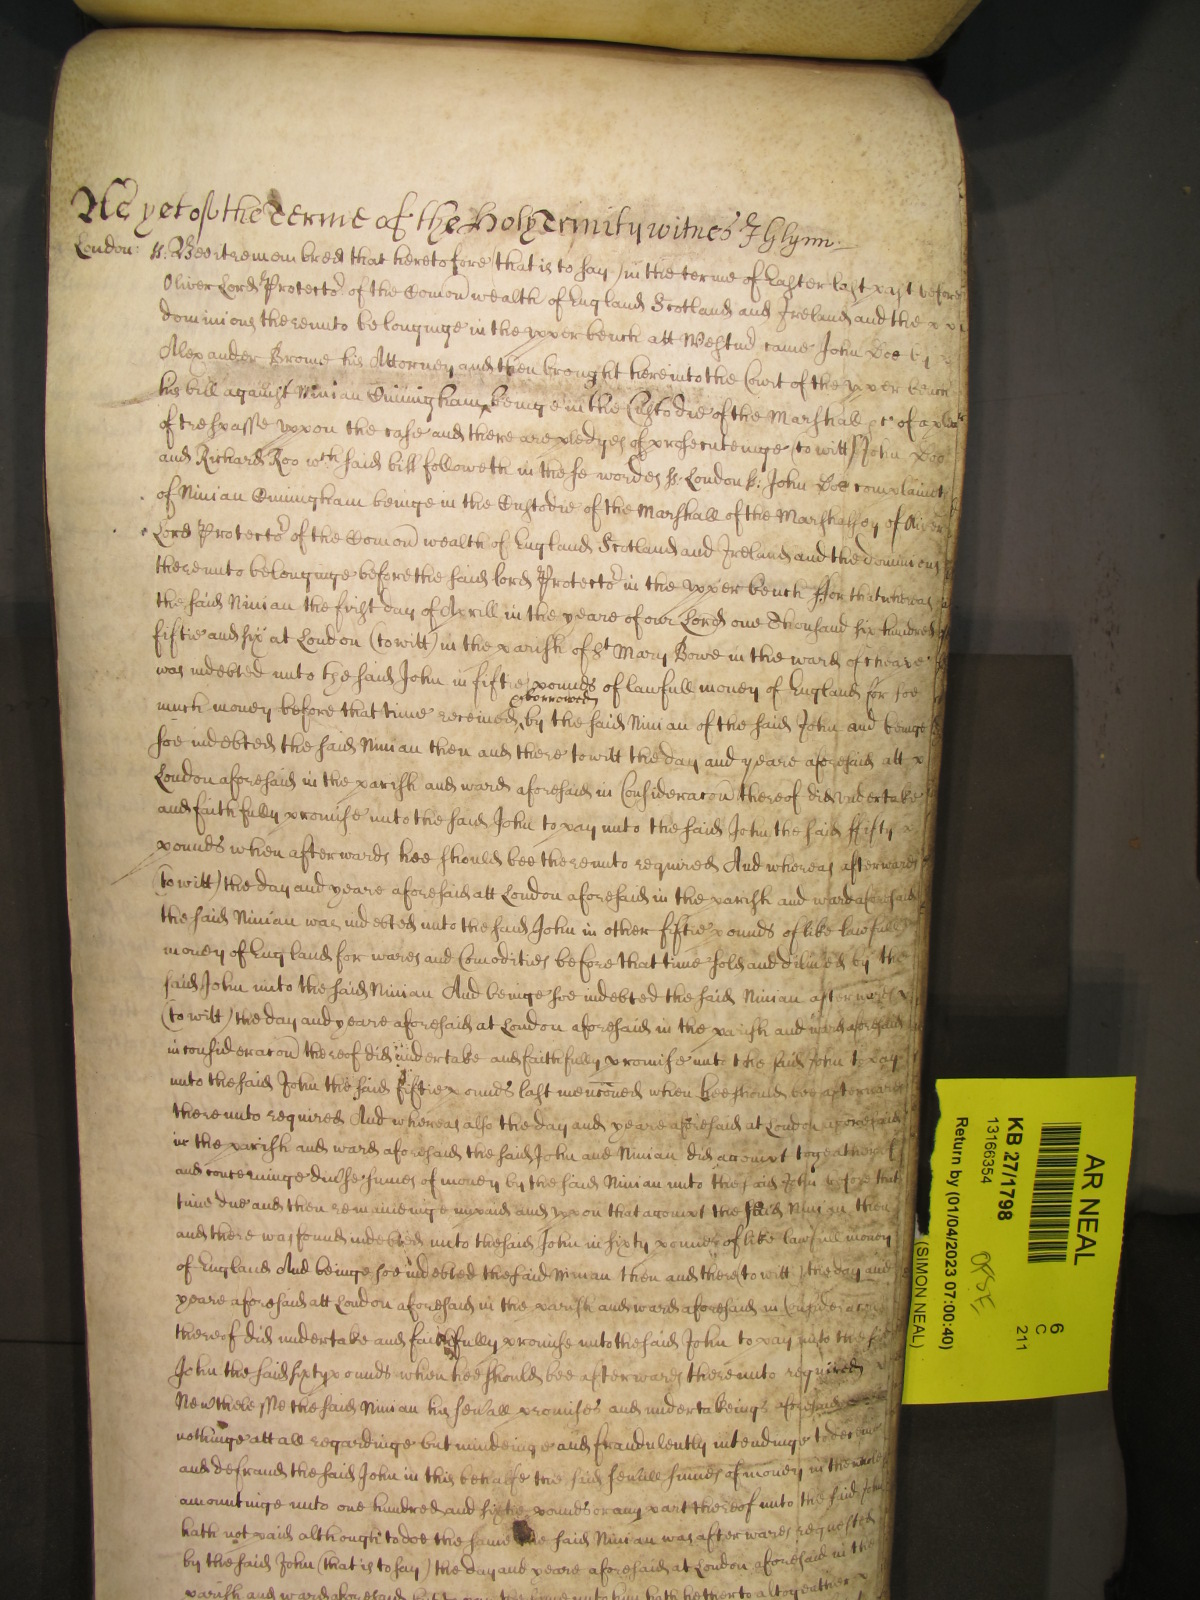 As yet of the Terme of the Holy Trinity witnes J Glynn
London: ss. Bee it remembred that heretofore (that is to say) in the terme of Easter last past before
Oliver Lord Protector of the Comon wealth of England Scotland and Ireland and the
dominions thereunto belonginge in the upper bench att Westmr came John Doe by
Alexander Brome his Attorney and then brought here into the Court of the upper bench
his bill against Ninian Cuningham beinge in the Custodie of the Marshall &c of a plea
of trespasse uppon the case and there are pledges of prosecuteinge (to witt) John Doe
and Richard Roo wch said bill followeth in these wordes ss. London ss: John Doe complaineth
of Ninian Cuningham beinge in the Custodie of the Marshall of the Marshalsey of Oliver
Lord Protector of the Comon wealth of England Scotland and Ireland and the dominions
thereunto belonginge before the said lord Protector in the upper bench ffor that whereas
the said Ninian the first day of Aprill in the yeare of our Lord one Thousand six hundred
fiftie and six at London (to witt) in the parish of St Mary Bowe in the ward of Cheape
was indebted unto the said John in fiftie pounds of lawfull money of England for soe
much money before that time received borrowed by the said Ninian of the said John and beinge
soe indebted the said Ninian then and there to witt the day and yeare aforesaid att
London aforesaid in the parish and ward aforesaid in Consideracon thereof did undertake
and faithfully promise unto the said John to pay unto the said John the said ffifty
pounds when afterwards hee should bee thereunto required And whereas afterwards
(to witt) the day and yeare aforesaid att London aforesaid in the parish and ward aforesaid
the said Ninian was indebted unto the said John in other fiftie pounds of like lawfull
money of England for wares and Comodities before that time sold and delivered by the
said John unto the said Ninian And beinge soe indebted the said Ninian afterwards
(to witt) the day and yeare aforesaid at London aforesaid in the parish and ward aforesaid
in consideracon thereof did undertake and faithfully promise unto the said John to pay
unto the said John the said fiftie pounds last menconed when hee should bee afterwards
thereunto required And whereas also the day and yeare aforesaid at London aforesaid
in the parish and ward aforesaid the said John and Ninian did accompt togeather of
and concerninge diverse sumes of money by the said Ninian unto the said John before that
time due and then remaineinge unpaid and upon that accompt the said Ninian then
and there was found indebted unto the said John in sixty pounds of like lawfull money
of England And beinge soe indebted the said Ninian then and there to witt the day and
yeare aforesaid att London aforesaid in the parish and ward aforesaid in Consideracon
thereof did undertake and faithfully promise unto the said John to pay unto the said
John the said sixty pounds when hee should bee afterwards thereunto required
Neverthelesse the said Ninian his severall promises and undertakeings aforesaid
nothinge att all regardinge but mindeinge and fraudulently intendinge to deceive
and defraud the said John in this behalfe the said severall summes of money in the whole
amountinge unto one hundred and sixtie pounds or any part thereof unto the said John
hath not paid although to doe the same the said Ninian was afterwards requested
by the said John (that is to say) the day and yeare aforesaid at London aforesaid in the
parish and ward aforesaid but to pay the same unto him hath hetherto altogeather
AR NEAL
KB 27/1798
13166354
Return by (01/04/2023 07:00:40)
(SIMON NEAL)
6
C
211